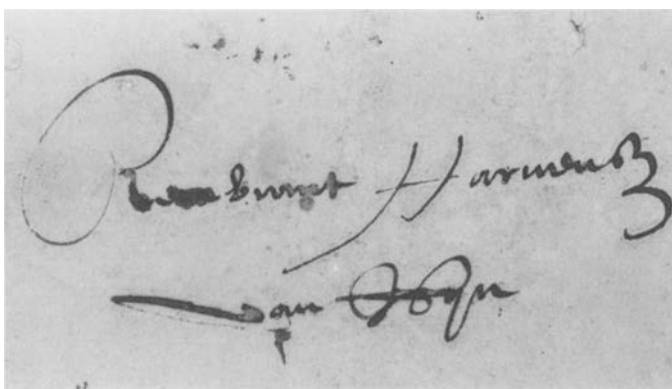 Rembrant Harmensz
van Rijn